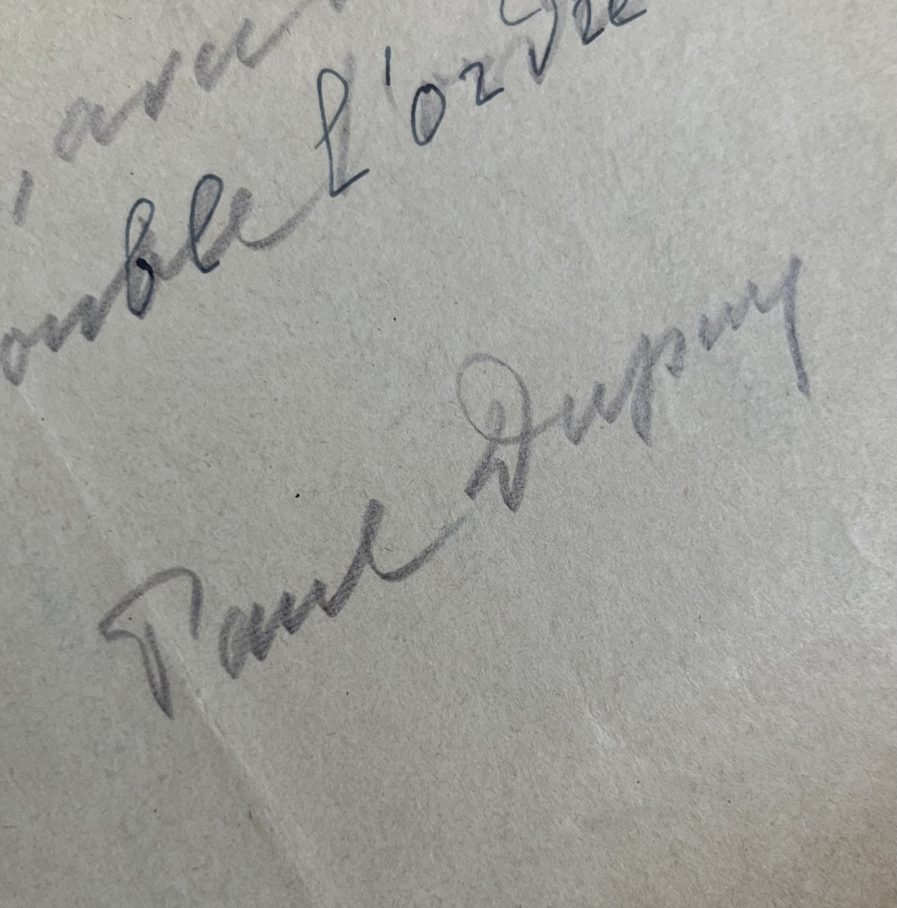 , avec
ouble l'ordre
Paul Dupuy